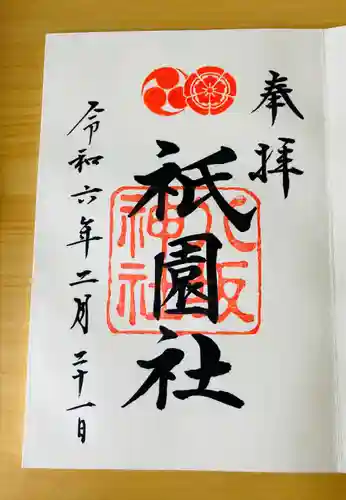 奉拝
八坂神社
祇園社
令和六年二月二十一日